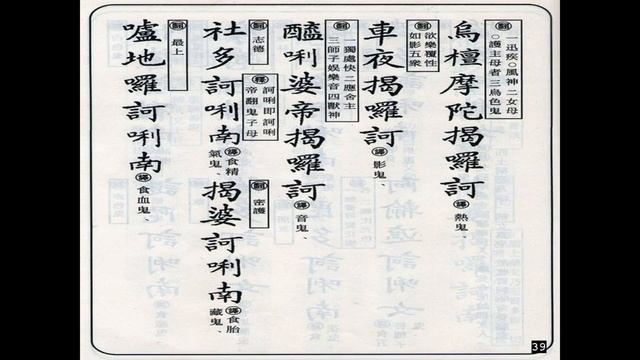 翻 一迅疾○風神 二女母
○護主母者三烏色鬼
烏檀摩陀揭囉訶 譯 熱鬼、
翻 欲樂覆性
如影五眾
車夜揭囉訶 譯 影鬼、
翻 一獨處快二應舍主
三師子娛樂音四獸神
醯唎婆帝揭囉訶 譯 音鬼、
翻 志德
釋 訶唎即訶唎
帝翻鬼子母
社多訶唎南 譯 食精
氣鬼、
翻 密護
揭婆訶唎南 譯 食胎
藏鬼、
翻 最上
嚧地囉訶唎南 譯 食血鬼、
39